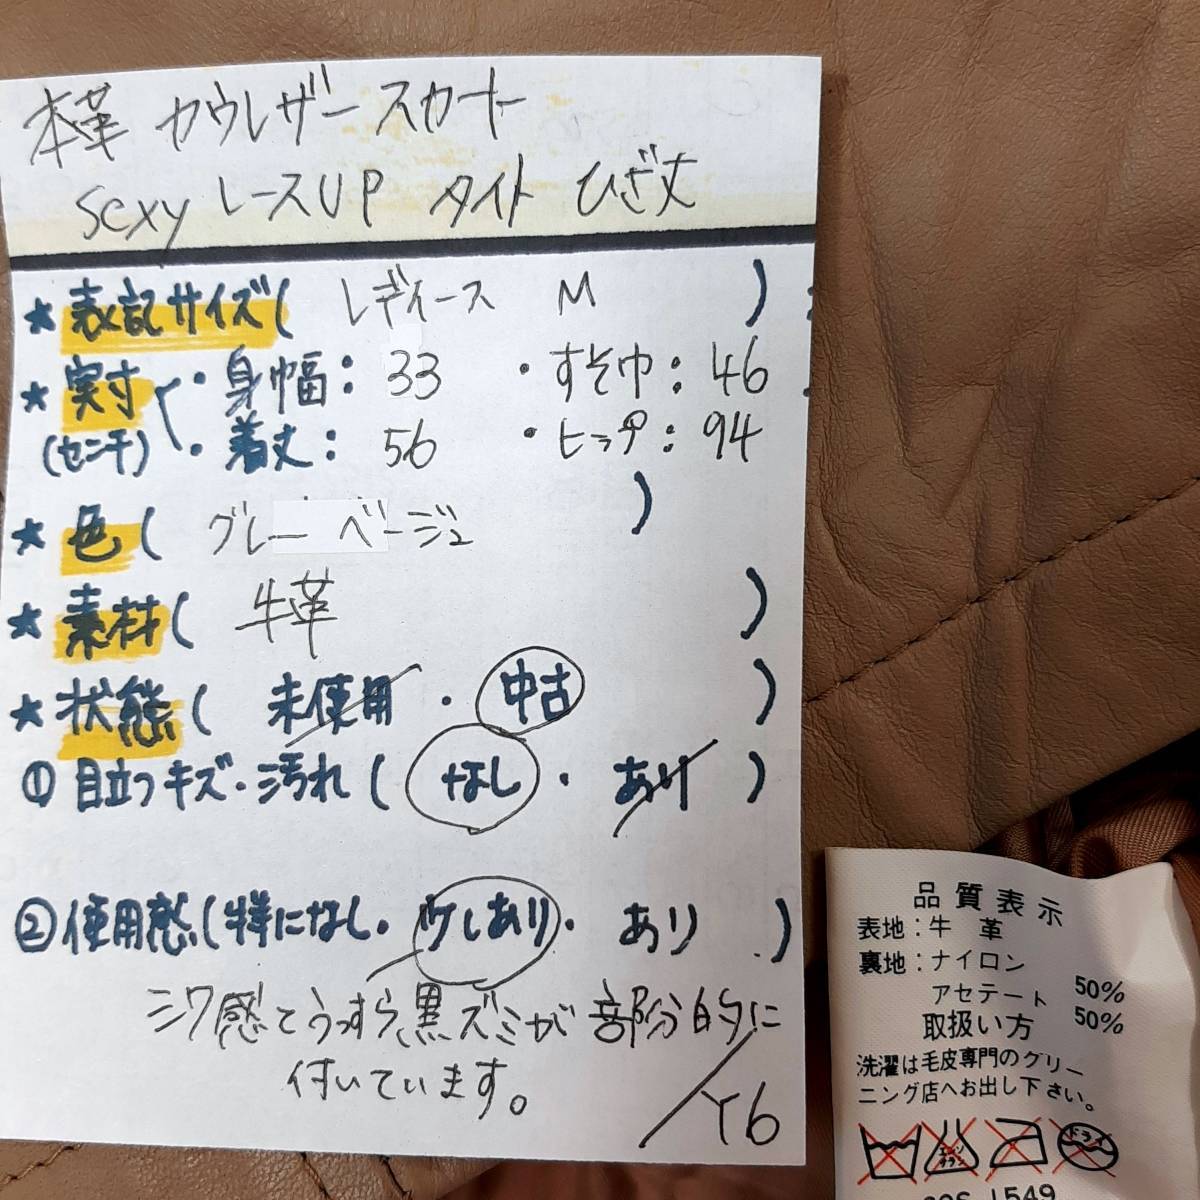 本革 カウレザースカート
sexy レースUP タイト ひざ丈
★表記サイズ( レディース M )
★実寸(・身幅: 33 ・すそ巾: 46
(センチ) ・着丈: 56 ・ヒップ: 94 )
★色( グレーベージュ )
★素材( 牛革 )
★状態( 未使用 ・ 中古 )
①目立つキズ・汚れ( なし ・ あり )
②使用感(特になし・少しあり・ あり )
シワ感とうっすら黒ズミが部分的に
付いています。
T6
品質表示
表地:牛 革
裏地:ナイロン 50%
アセテート 50%
取扱い方
洗濯は毛皮専門のクリー
ニング店へお出し下さい。
エンソ
サラシ
ドライ
1549